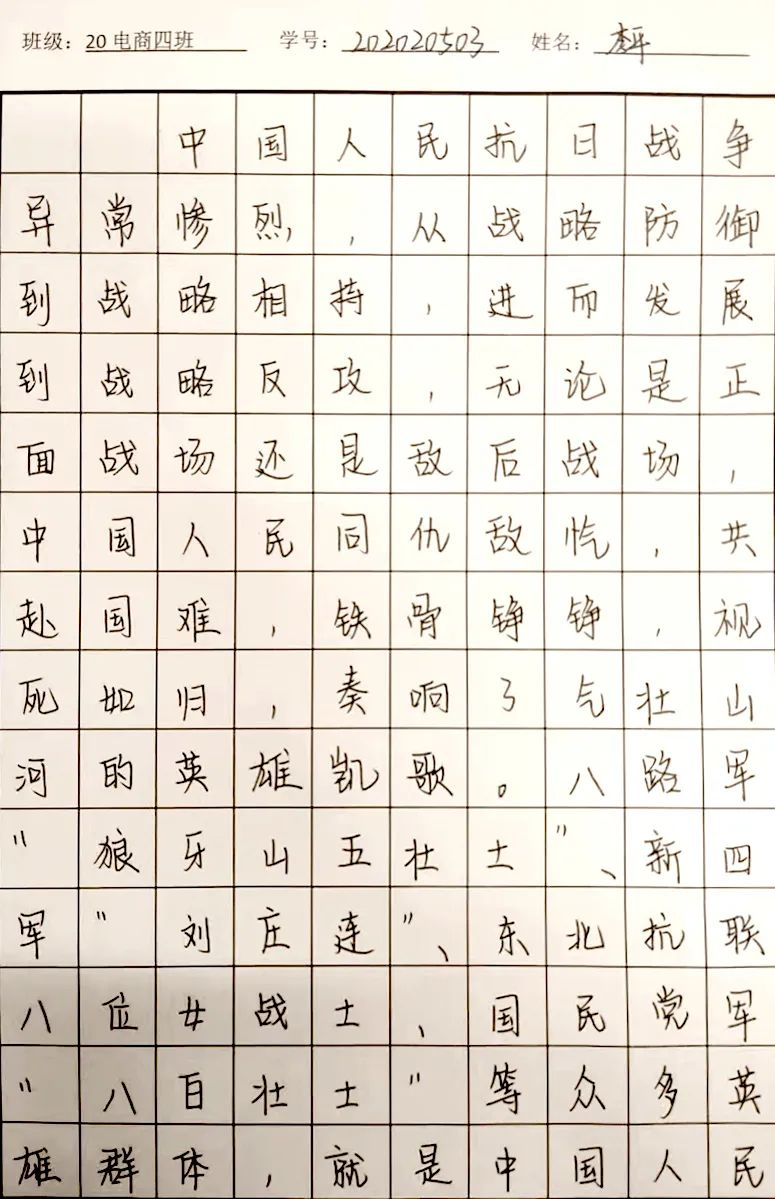 班级：20电商四班 学号：202020503 姓名：
中国人民抗日战争
异常惨烈，从战略防御
到战略相持，进而发展
到战略反攻，无论是正
面战场还是敌后战场，
中国人民同仇敌忾，共
赴国难，铁骨铮铮，视
死如归，奏响了气壮山
河的英雄凯歌。八路军
“狼牙山五壮士”、新四
军“刘庄连”、东北抗联
八位女战士、国民党军
“八百壮士”等众多英
雄群体，就是中国人民